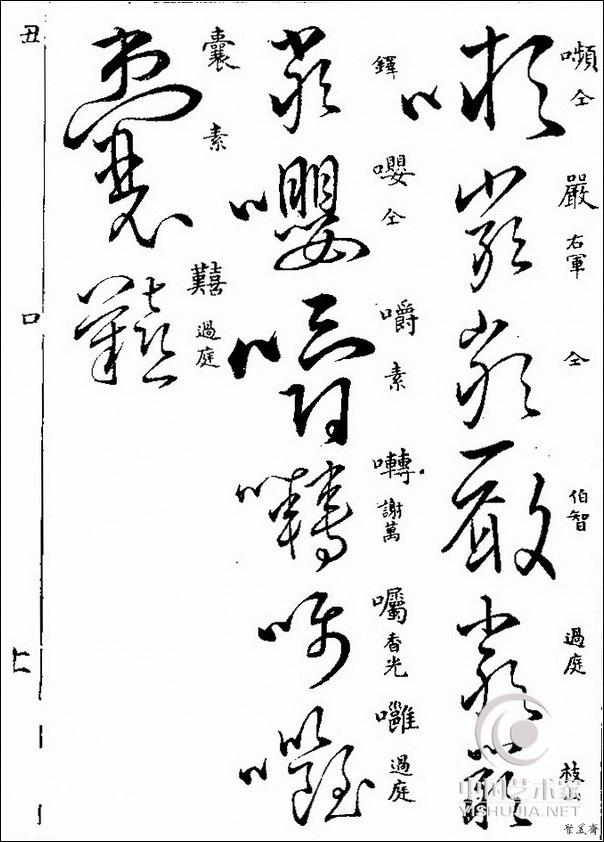 嚬 仝
嚴 右軍
仝
伯智
過庭
枝山
鐸
嚶 仝
嚼 素
囀 謝萬
囑 香光
囃 過庭
囊 素
囏 過庭
丑
口
中国艺术家
YISHUJIA.NET